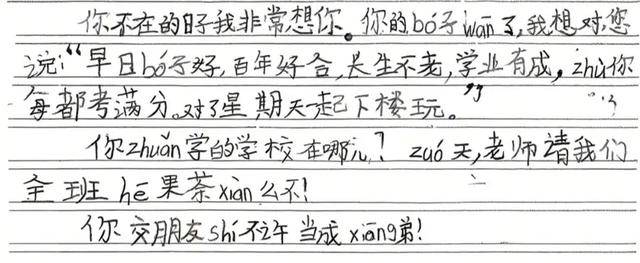 你不在的日子我非常想你。你的bó子wān了,我想对您
说:“早日bó子好,百年好合,长生不老,学业有成,zhù你
每都考满分。对了星期天一起下楼玩。”
你zhuǎn学的学校在哪儿? zuó天,老师请我们
全班 hē果茶xiàn么不!
你交朋友shí不许当成xiōng弟!